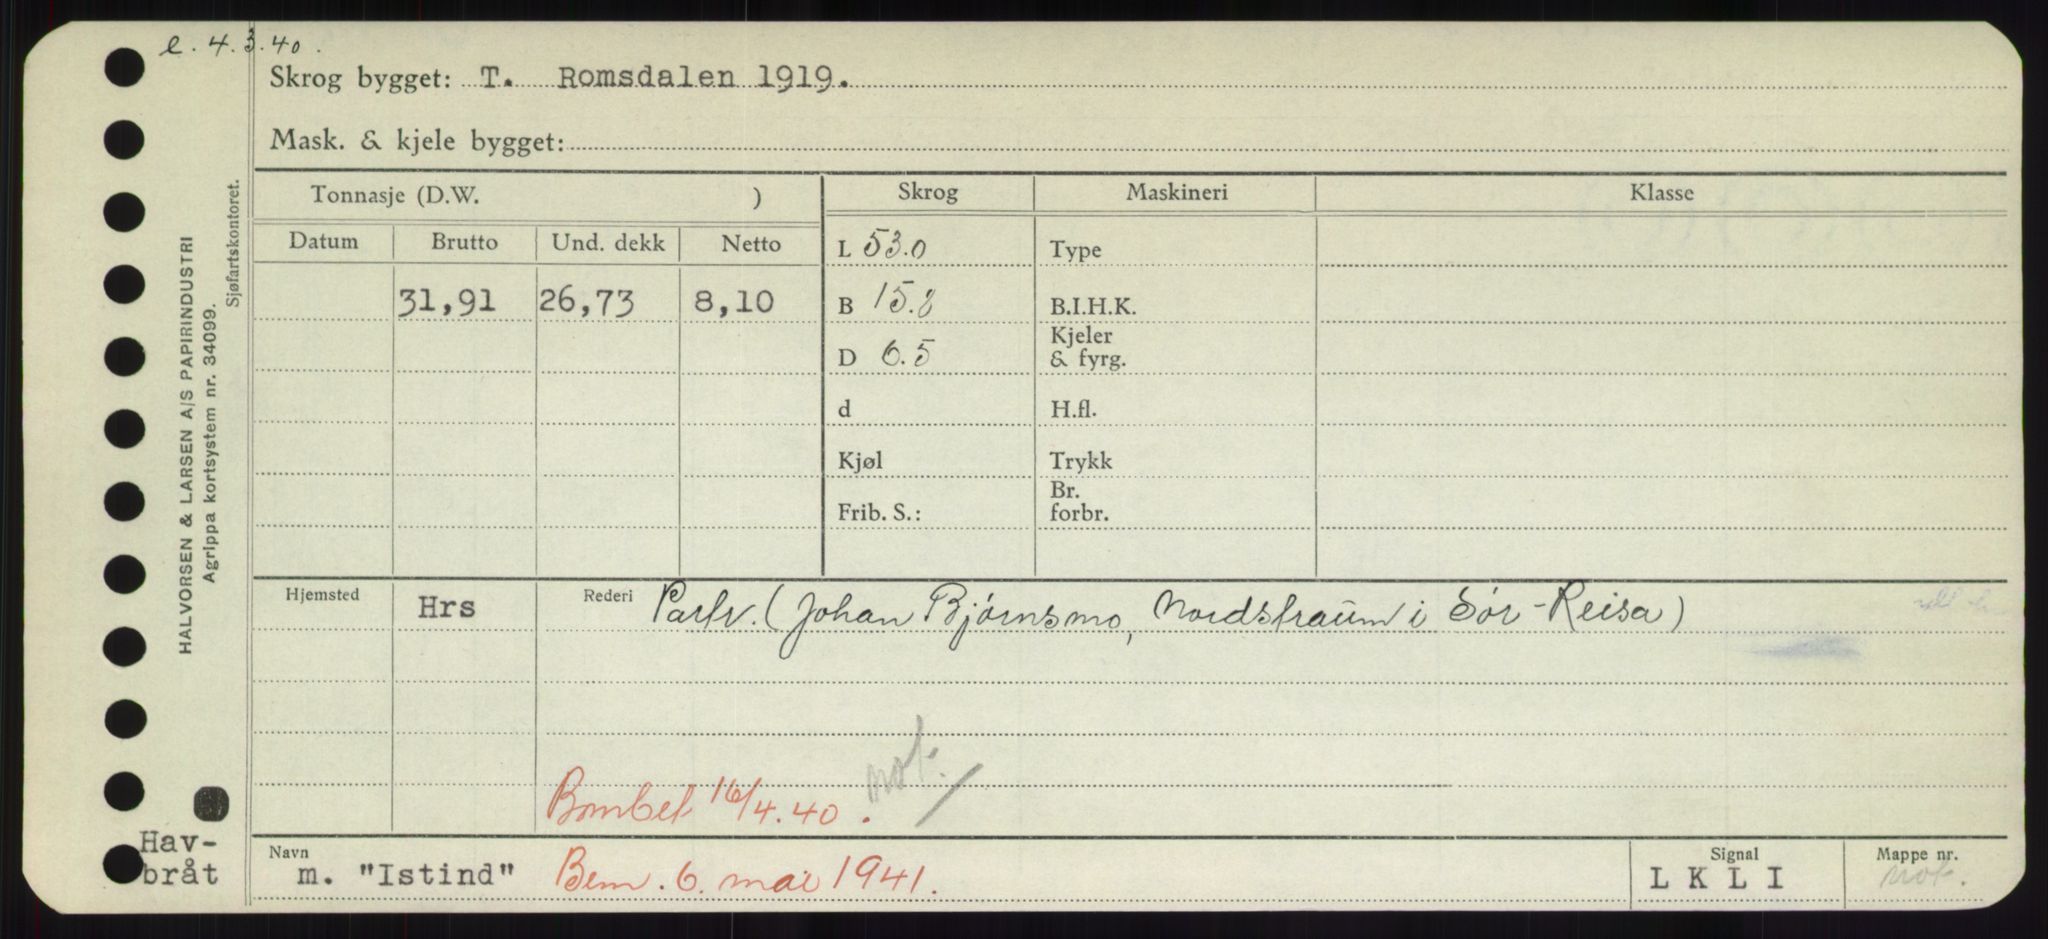 e. 4.3.40.
Skrog bygget: T. Romsdalen 1919.
Mask. & kjele bygget:
Tonnasje (D.W. )
Skrog Maskineri Klasse
Datum Brutto Und. dekk Netto
L 53.0 Type
31,91 26,73 8,10
B 15.8 B.I.H.K.
D 6.5 Kjeler & fyrg.
d H.fl.
Kjøl Trykk
Frib. S.: Br. forbr.
Hjemsted Hrs Rederi Partr. (Johan Bjørnsmo, Nordstraum i Sør-Reisa)
not.
Bombet 16/4.40.
Navn Signal Mappe nr.
m. "Istind" Bem. 6. mai 1941. L K L I not.
Hav-
bråt
HALVORSEN & LARSEN A/S PAPIRINDUSTRI
Agrippa kortsystem nr. 34099.
Sjøfartskontoret.